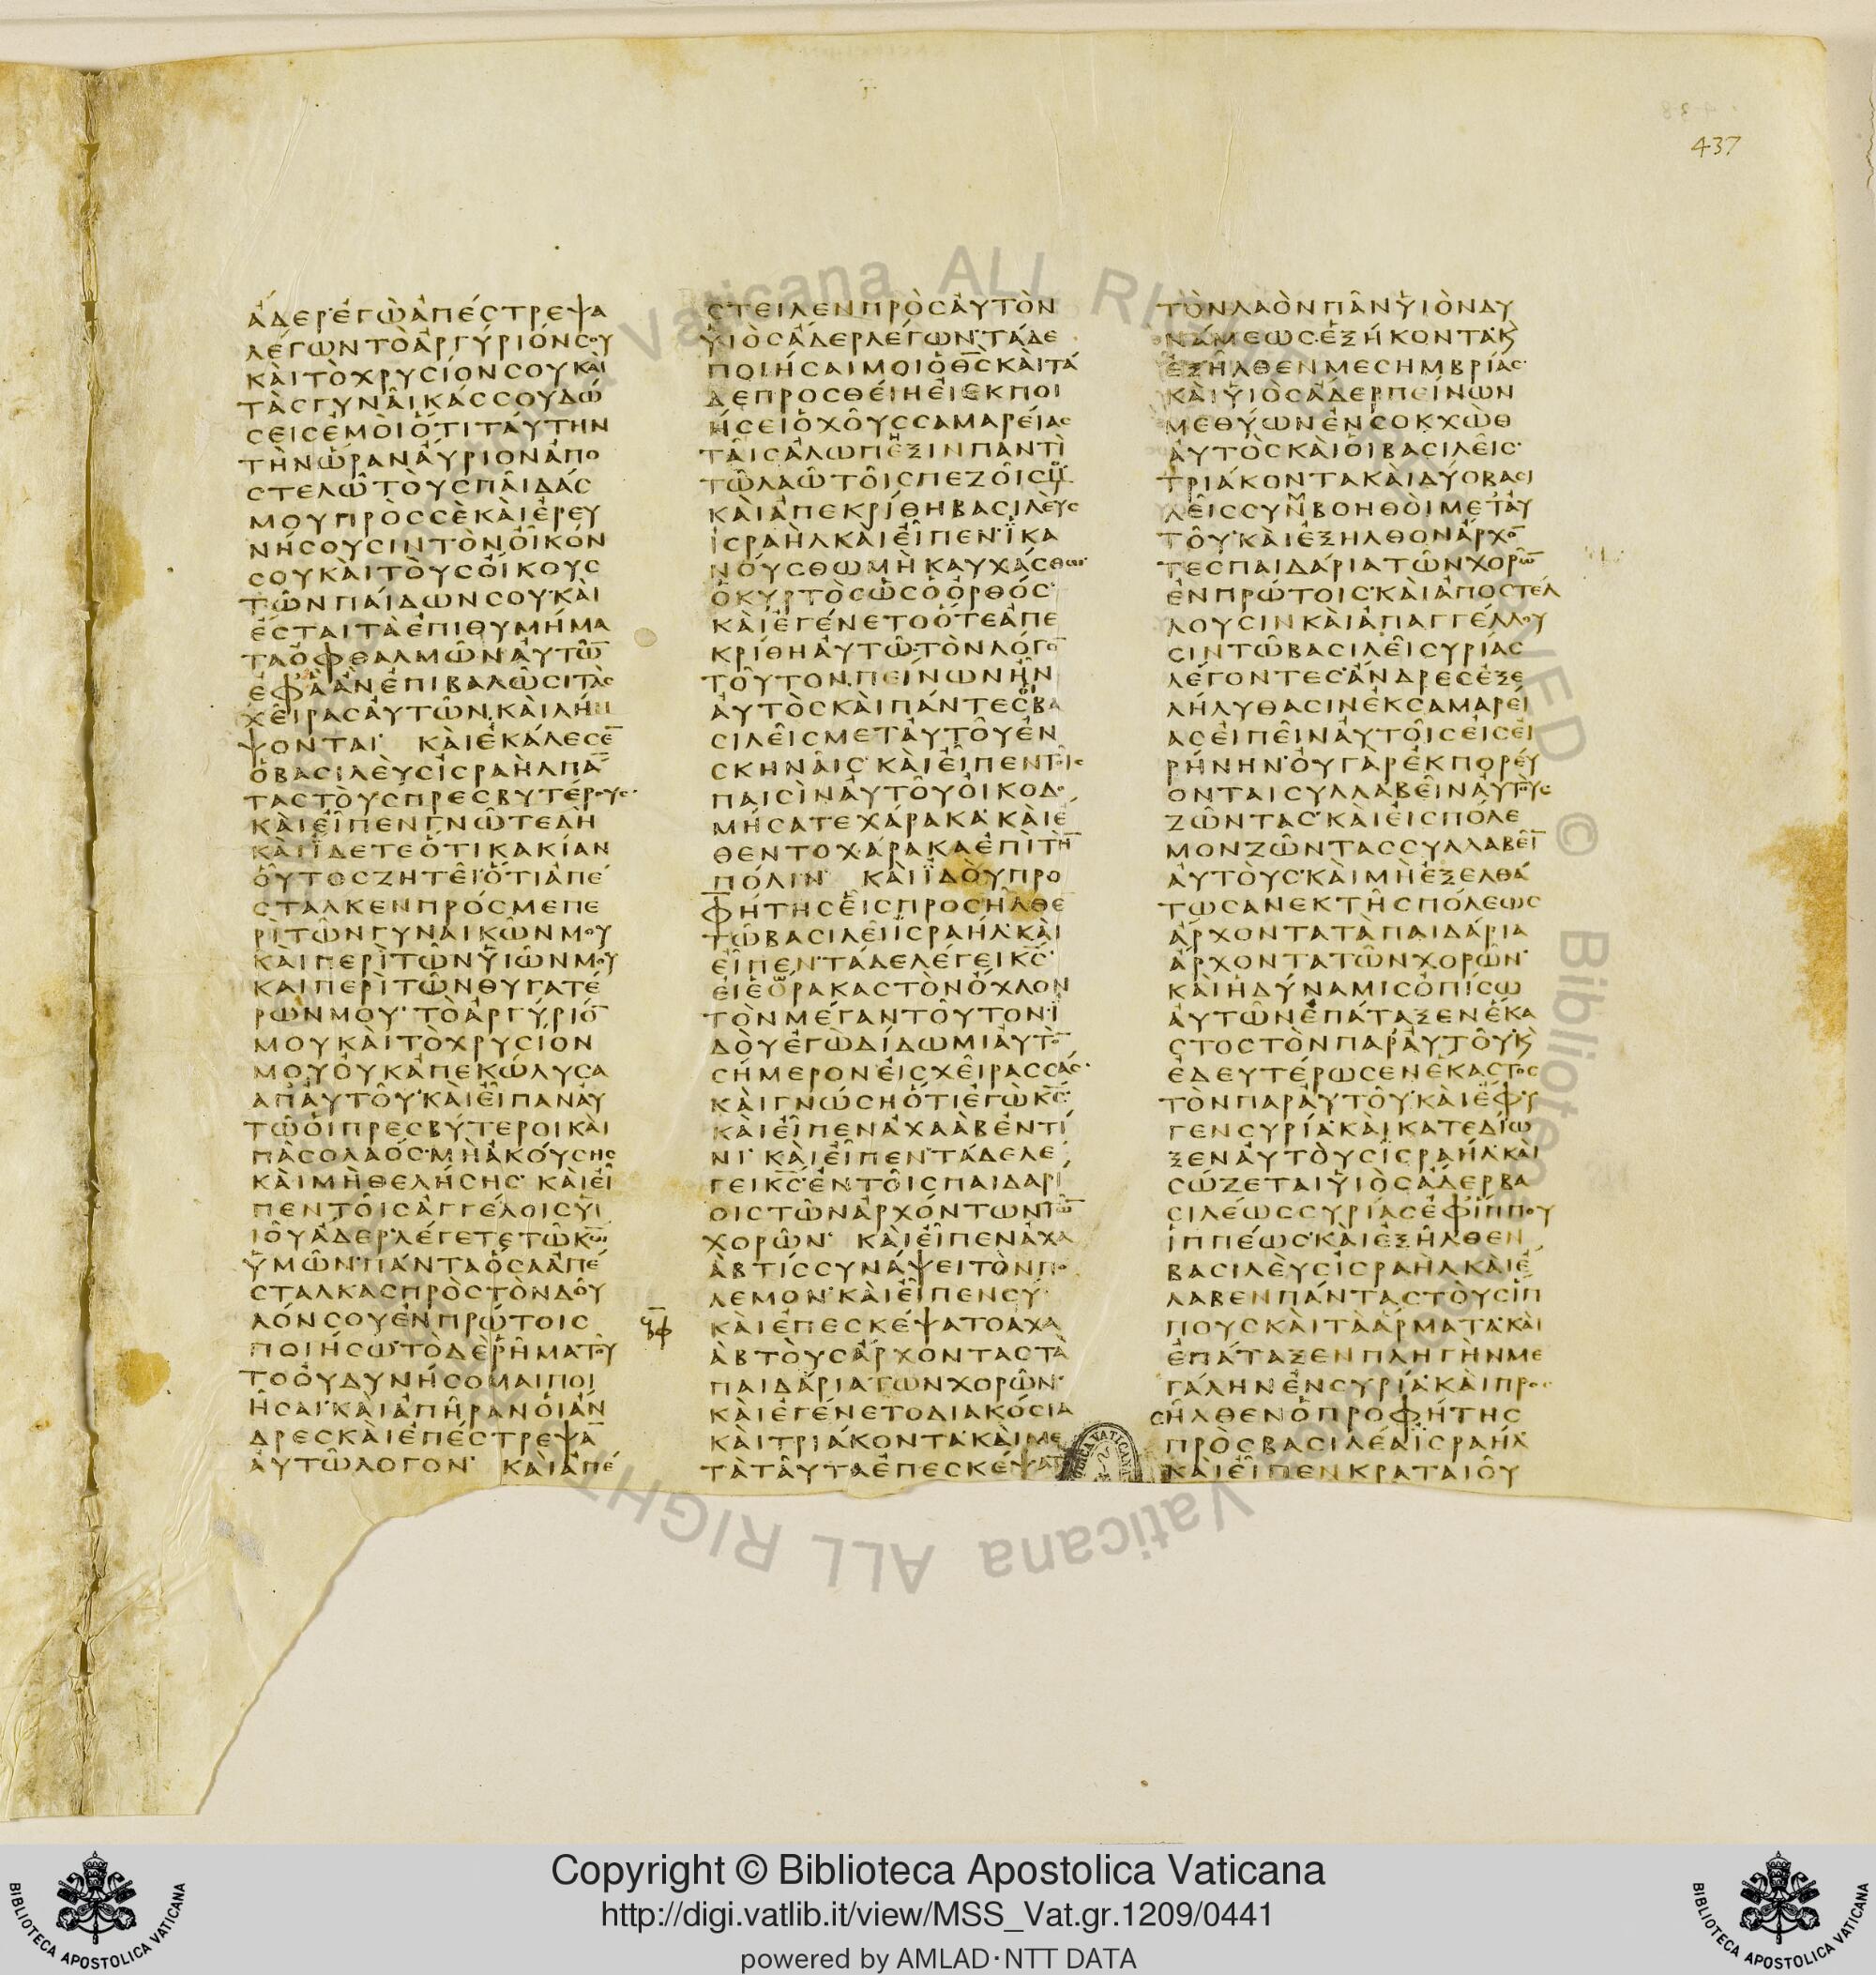 437
ἄδερ· ἐγὼ ἀπέστρεψα
λέγων τὸ ἀργύριόν σου
καὶ τὸ χρυσίον σου καὶ
τὰς γυναῖκάς σου δώ
σεις ἐμοὶ ὅτι ταύτην
τὴν ὥραν αὔριον ἀπο
στελῶ τοὺς παῖδάς
μου πρὸς σὲ καὶ ἐρευ
νήσουσιν τὸν οἶκόν
σου καὶ τοὺς οἴκους
τῶν παίδων σου· καὶ
ἔσται τὰ ἐπιθυμήμα
τα ὀφθαλμῶν αὐτῶ̅
ἐφ ἃ ἂν ἐπιβαλῶσι τὰς
χεῖρας αὐτῶν καὶ λήμ
ψονται· καὶ ἐκάλεσε̅
ὁ βασιλεὺς ἰσραὴλ πα̅
τας τοὺς πρεσβυτέρους·
καὶ εἶπεν γνῶτε δὴ
καὶ ἴδετε ὅτι κακίαν
οὗτος ζητεῖ· ὅτι ἀπέ
σταλκεν πρός με πε
ρὶ τῶν γυναικῶν μου
καὶ περὶ τῶν υἱῶν μου
καὶ περὶ τῶν θυγατέ
ρων μου· τὸ ἀργύριο̅
μου καὶ τὸ χρυσίον
μου οὐκ ἀπεκώλυσα
ἀπ αὐτοῦ· καὶ εἶπαν αὐ
τῷ οἱ πρεσβύτεροι καὶ
πᾶς ὁ λαός· μὴ ἀκούσης
καὶ μὴ θελήσης· καὶ εἶ
πεν τοῖς ἀγγέλοις υἱ
οῦ ἄδερ· λέγετε τῷ κω
ὑμῶν· πάντα ὅσα ἀπέ
σταλκας πρὸς τὸν δοῦ
λόν σου ἐν πρώτοις
ποιήσω· τὸ δὲ ῥῆμα τοῦ
το οὐ δυνήσομαι ποι
ῆσαι· καὶ ἀπῆραν οἱ ἄν
δρες καὶ ἐπέστρεψα̅
αὐτῷ λόγον· καὶ ἀπέ
στειλεν πρὸς αὐτὸν
υἱὸς ἄδερ λέγων· τάδε
ποιήσαι μοι ὁ θ̅ς̅ καὶ τά
δε προσθείη εἰ ἐκποι
ήσει ὁ χοῦς σαμαρείας
ταῖς ἀλώπεξιν παντὶ
τῷ λαῷ τοῖς πεζοῖς μου
καὶ ἀπεκρίθη βασιλεὺς
ἰσραὴλ καὶ εἶπεν· ἱκα
νούσθω μὴ καυχάσθω
ὁ κυρτὸς ὡς ὁ ὀρθός·
καὶ ἐγένετο ὅτε ἀπε
κρίθη αὐτῷ τὸν λόγο̅
τοῦτον πείνων ἦν
αὐτὸς καὶ πάντες οἱ βα
σιλεῖς μετ αὐτοῦ ἐν
σκηναῖς· καὶ εἶπεν τοῖς
παισὶν αὐτοῦ οἰκοδο
μήσατε χάρακα· καὶ ἔ
θεντο χάρακα ἐπὶ τὴ̅
πόλιν· καὶ ἰδοὺ προ
φήτης εἷς προσῆλθε̅
τῷ βασιλεῖ ἰσραήλ· καὶ
εἶπεν· τάδε λέγει κ̅ς̅·
εἰ ἑόρακας τὸν ὄχλον
τὸν μέγαν τοῦτον· ἰ
δοὺ ἐγὼ δίδωμι αὐτὸ̅
σήμερον εἰς χεῖρας σάς·
καὶ γνώση ὅτι ἐγὼ κ̅ς̅·
καὶ εἶπεν ἀχαὰβ ἐν τί
νι· καὶ εἶπεν· τάδε λέ
γει κ̅ς̅· ἐν τοῖς παιδαρί
οις τῶν ἀρχόντων τῶ̅
χορῶν· καὶ εἶπεν ἀχα
ὰβ τίς συνάψει τὸν πό
λεμον· καὶ εἶπεν σύ·
καὶ ἐπεσκέψατο ἀχα
ὰβ τοὺς ἄρχοντας τὰ
παιδάρια τῶν χορῶν·
καὶ ἐγένετο διακόσια
καὶ τριάκοντα· καὶ με
τὰ ταῦτα ἐπεσκέψατο
τὸν λαὸν πᾶν υἱὸν δυ
νάμεως· ἑξήκοντα· κ
ἐξῆλθεν μεσημβρίας·
καὶ υἱὸς ἄδερ πείνων
μεθύων ἐν σοκχὼθ
αὐτὸς καὶ οἱ βασιλεῖς·
τριάκοντα καὶ δύο βασι
λεῖς συνβοηθοὶ μετ αὐ
τοῦ· καὶ ἐξῆλθον ἄρχο̅
τες παιδάρια τῶν χορῶ̅
ἐν πρώτοις· καὶ ἀποστέλ
λουσιν καὶ ἀπαγγέλλου
σιν τῷ βασιλεῖ συρίας
λέγοντες· ἄνδρες ἐξε
ληλύθασιν ἐκ σαμαρεί
ας εἰπεῖν αὐτοῖς εἰς εἰ
ρήνην· οὐ γὰρ ἐκπορεύ
ονται συλλαβεῖν αὐτοὺς
ζῶντας· καὶ εἰς πόλε
μον ζῶντας συλλαβεῖ̅
αὐτούς· καὶ μὴ ἐξελθά
τωσαν ἐκ τῆς πόλεως
ἄρχοντα τὰ παιδάρια
ἄρχοντα τῶν χορῶν·
καὶ ἡ δύναμις ὀπίσω
αὐτῶν ἐπάταξεν ἕκα
στος τὸν παρ αὐτοῦ· κ
ἐδευτέρωσεν ἕκαστος
τὸν παρ αὐτοῦ· καὶ ἔφυ
γεν συρία· καὶ κατεδίω
ξεν αὐτοὺς ἰσραήλ· καὶ
σώζεται υἱὸς ἄδερ βα
σιλέως συρίας ἐφ ἵππου
ἱππέως· καὶ ἐξῆλθεν
βασιλεὺς ἰσραὴλ καὶ ἔ
λαβεν πάντας τοὺς ἵπ
πους καὶ τὰ ἅρματα· καὶ
ἐπάταξεν πληγὴν με
γάλην ἐν συρία· καὶ προ
σῆλθεν ὁ προφήτης
πρὸς βασιλέα ἰσραήλ
καὶ εἶπεν κραταιοῦ
Copyright © Biblioteca Apostolica Vaticana
http://digi.vatlib.it/view/MSS_Vat.gr.1209/0441
powered by AMLAD·NTT DATA
BIBLIOTECA APOSTOLICA VATICANA
BIBLIOTECA APOSTOLICA VATICANA